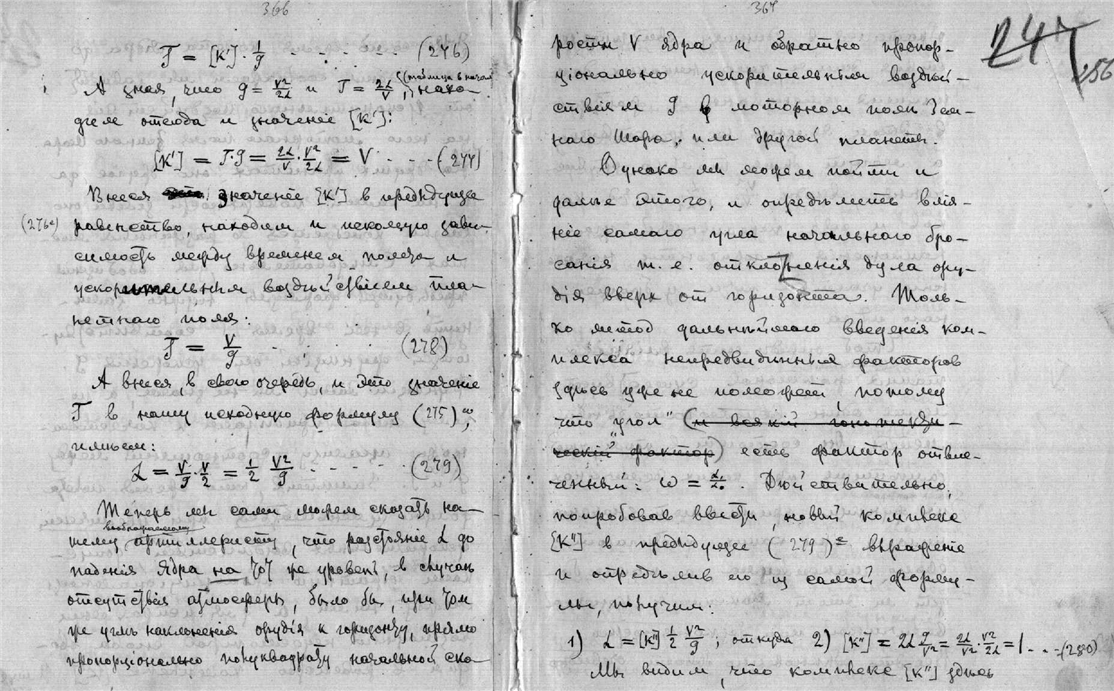 366
T = [K'] · 1/g . . . (276)
А зная, что g = V²/2L и T = 2L/V, (таблица в начал) нахо-
дим отсюда и значеніе [K']:
[K'] = T·g = 2L/V · V²/2L = V - - - (277)
Внеся значеніе [K'] в предыдущее
(276а) равенство, находим и искомую зави-
симость между временем полета и
ускорительным воздѣйствіем пла-
нетнаго поля:
T = V/g . . . (278)
А внеся в свою очередь и это значеніе
T в нашу исходную формулу (275),
имѣем:
L = V/g · V/2 = 1/2 V²/g - - - - - (279)
Теперь мы сами можем сказать на-
воображаемому
шему артиллеристу, что разстояніе L до
паденія ядра на тот же уровень, в случаѣ
отсутствія атмосферы, было бы, при том
же углѣ наклоненія орудія к горизонту, прямо
пропорціонально полуквадрату начальной ско-
367
247
256
рости V ядра и обратно пропор-
ціонально ускорительным воздѣй-
ствіям g в моторном поли Зем-
ного Шара, или другой планеты.
Однако мы можем пойти и
дальше этого, и опредѣлить влія-
ніе самого угла начальнаго бро-
санія т. е. отклоненія дула ору-
дія вверх от горизонта. Толь-
ко метод дальнѣйшаго введенія ком-
плекса непредвидѣнных факторов
здѣсь уже не поможет, потому
что "угол" (и всякій гонометри-
ческій фактор) есть фактор отвле-
ченный: ω = . Дѣйствительно,
попробовав ввести новый комплекс
[K"] в предыдущее (279) выраженіе
и опредѣлив его из самой форму-
лы, получим:
1) L = [K"] 1/2 V²/g ; откуда 2) [K"] = 2L g/V² = 2L/V² · V²/2L = 1 - - - (280)
Мы видим, что комплекс [K"] здѣсь